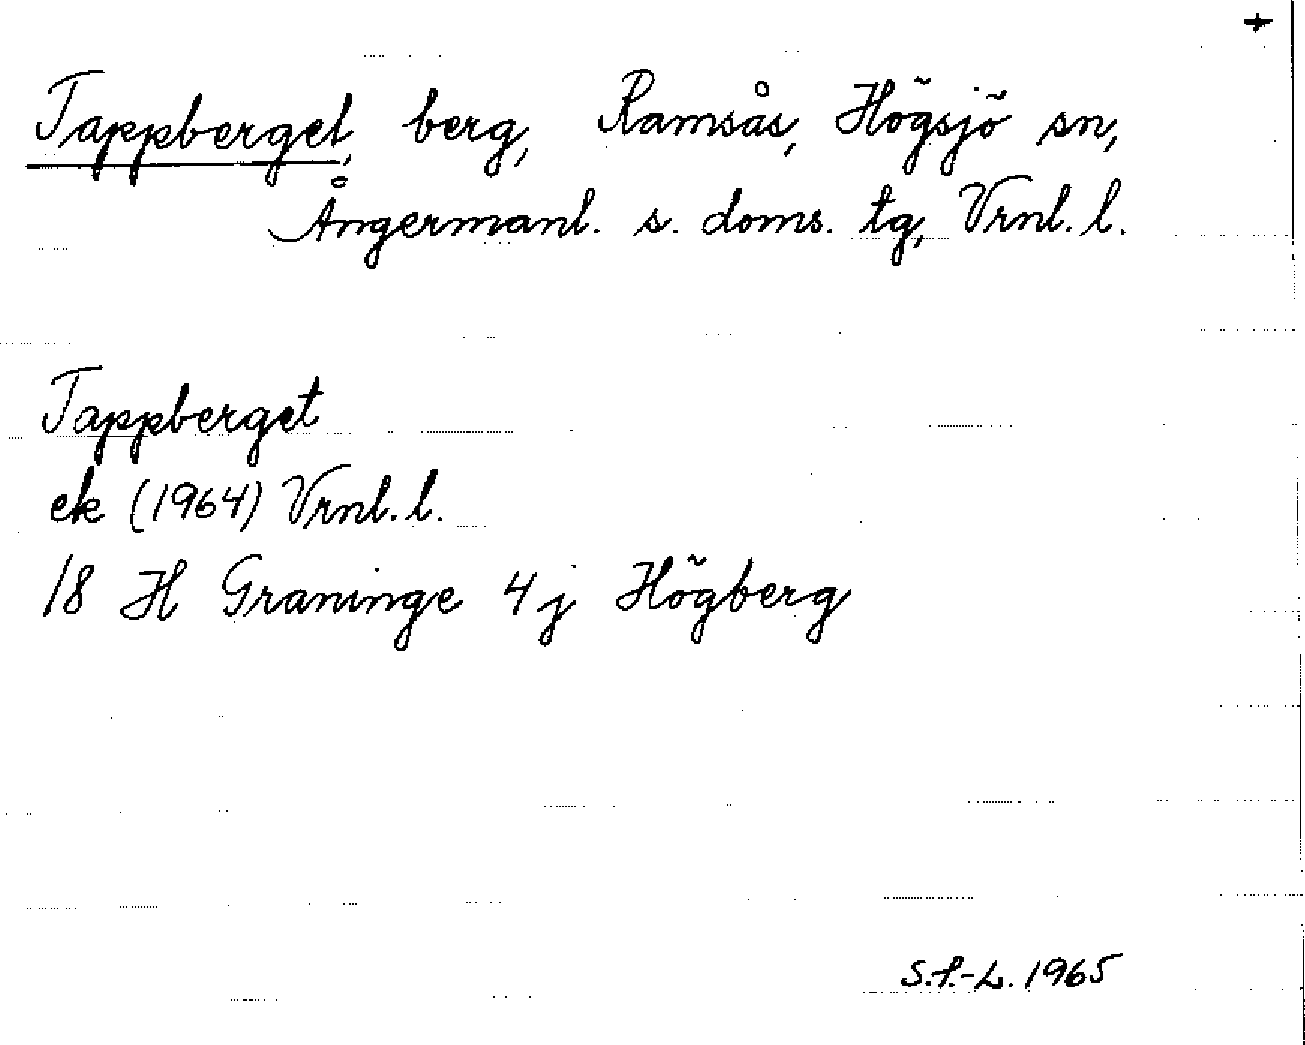 +
Tappberget, berg, Ramsås, Högsjö sn,
Ångermanl. s. doms. tg, Vrnl. l.
Tappberget
ek (1964) Vrnl. l.
18 H Graninge 4 j Högberg
S.P.-L. 1965